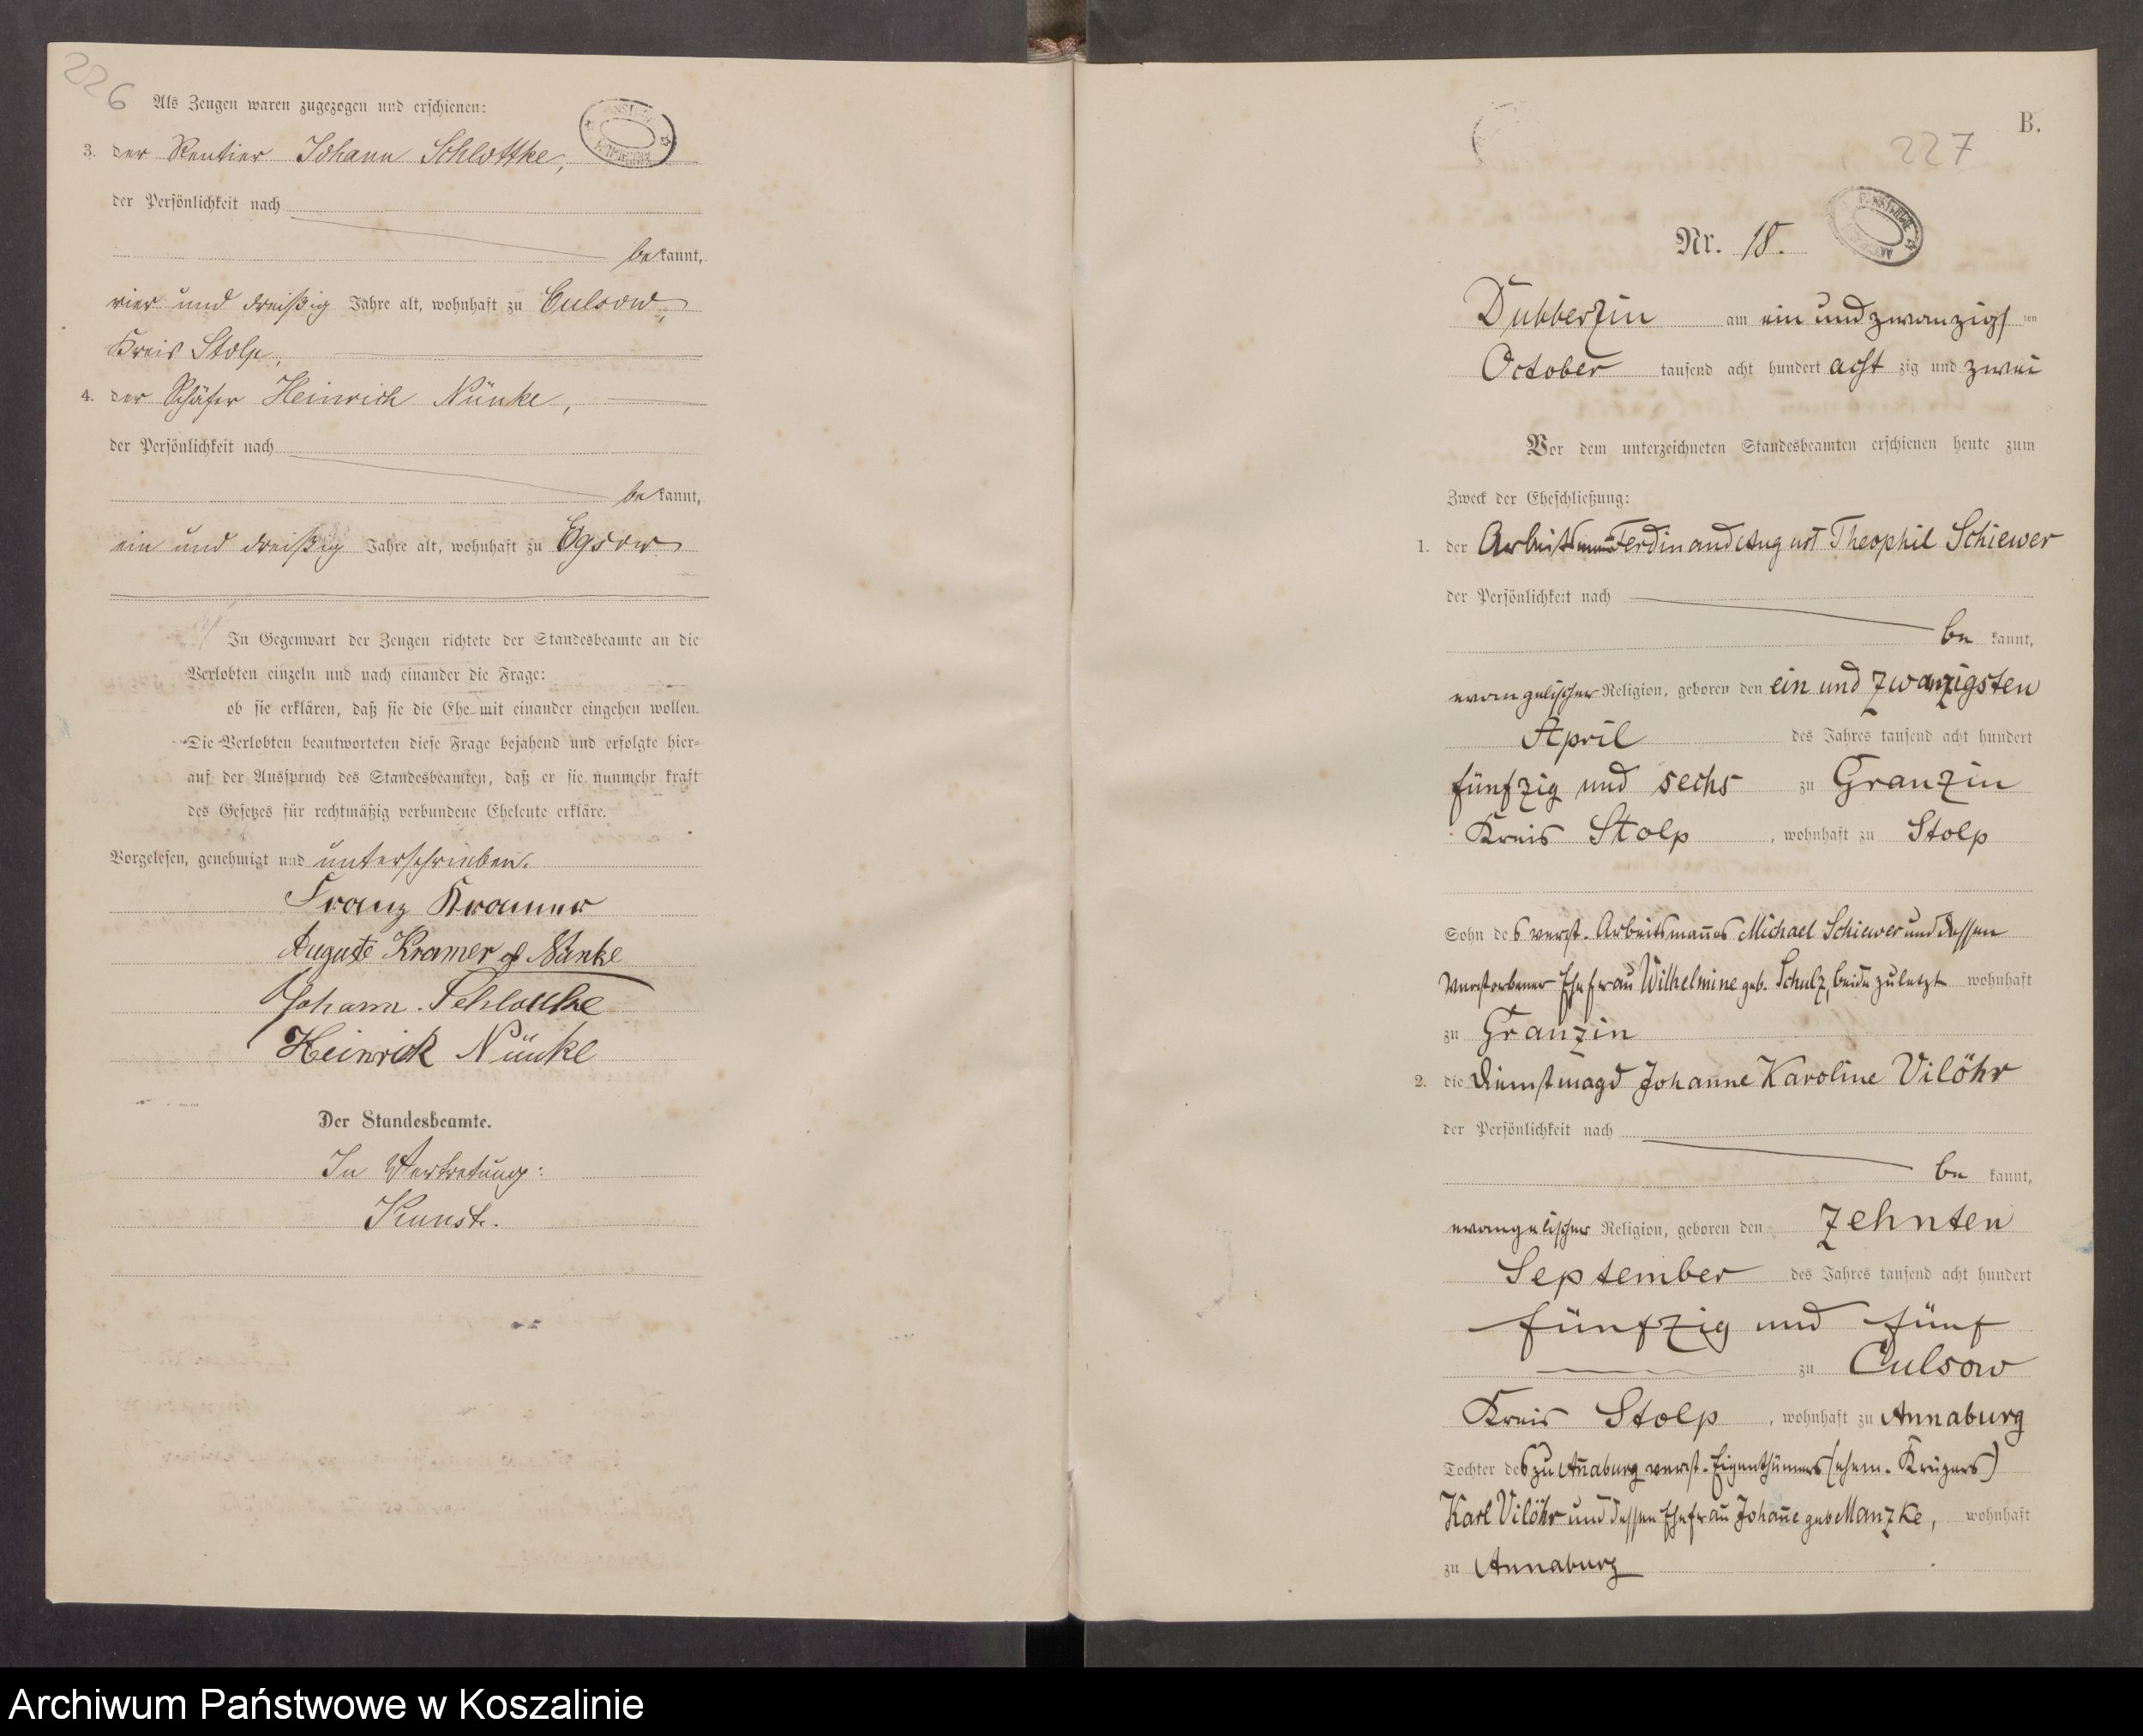 226
Als Zeugen waren zugezogen und erschienen:
3. der Rentier Johann Schlottke,
der Persönlichkeit nach
bekannt,
vier und dreißig Jahre alt, wohnhaft zu Culsow,
Kreis Stolp,
4. der Schäfer Heinrich Nünke,
der Persönlichkeit nach
bekannt,
ein und dreißig Jahre alt, wohnhaft zu Egsow
In Gegenwart der Zeugen richtete der Standesbeamte an die
Verlobten einzeln und nach einander die Frage:
ob sie erklären, daß sie die Ehe mit einander eingehen wollen.
Die Verlobten beantworteten diese Frage bejahend und erfolgte hier-
auf der Ausspruch des Standesbeamten, daß er sie nunmehr kraft
des Gesetzes für rechtmäßig verbundene Eheleute erkläre.
Vorgelesen, genehmigt und unterschrieben.
Franz Kramer
Auguste Kramer Nünke
Johann Schlottke
Heinrich Nünke
Der Standesbeamte.
In Vertretung:
Kunst.
B.
227
Nr. 18.
Dubberzin am ein und zwanzigsten
October tausend acht hundert achtzig und zwei
Vor dem unterzeichneten Standesbeamten erschienen heute zum
Zweck der Eheschließung:
1. der Arbeitsmann Ferdinand August Theophil Schiewer
der Persönlichkeit nach
bekannt,
evangelischer Religion, geboren den ein und zwanzigsten
April des Jahres tausend acht hundert
fünfzig und sechs zu Granzin
Kreis Stolp, wohnhaft zu Stolp
Sohn des verst. Arbeitsmannes Michael Schiewer und dessen
verstorbener Ehefrau Wilhelmine geb. Schulz, beide zuletzt wohnhaft
zu Granzin
2. die Dienstmagd Johanne Karoline Vilöhr
der Persönlichkeit nach
bekannt,
evangelischer Religion, geboren den zehnten
September des Jahres tausend acht hundert
fünfzig und fünf
zu Culsow
Kreis Stolp, wohnhaft zu Annaburg
Tochter des zu Annaburg verst. Eigenthümers (ehem. Krügers)
Karl Vilöhr und dessen Ehefrau Johanne geb Manzke, wohnhaft
zu Annaburg
Archiwum Państwowe w Koszalinie